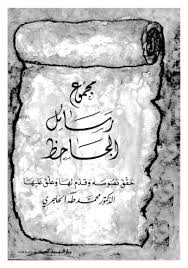 مجموع
رسائل
الجاحظ
حقق نصوصه وقدم لها وعلق عليها
الدكتور محمد طه الحاجري